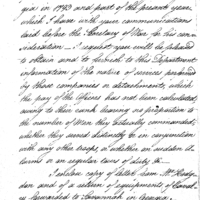 gia in 1793 and part of the present year,
which I have with your communications
laid before the Secretary of War for his con-
sideration — I request you will be pleased
to obtain and to furnish to this Department
information of the nature of services performed
by those companies or detachments, which
the pay of the officers has not been calculated
according to their rank having no proportion to
the number of Men they actually commanded,
whether they served distinctly or in conjunction
with any other troops, or whether on sudden a-
larms or on regular tours of duty &c —
I enclose copy of letter from Mr Hodg-
don and of a return of equipments of
forwarded to Savannah in Georgia